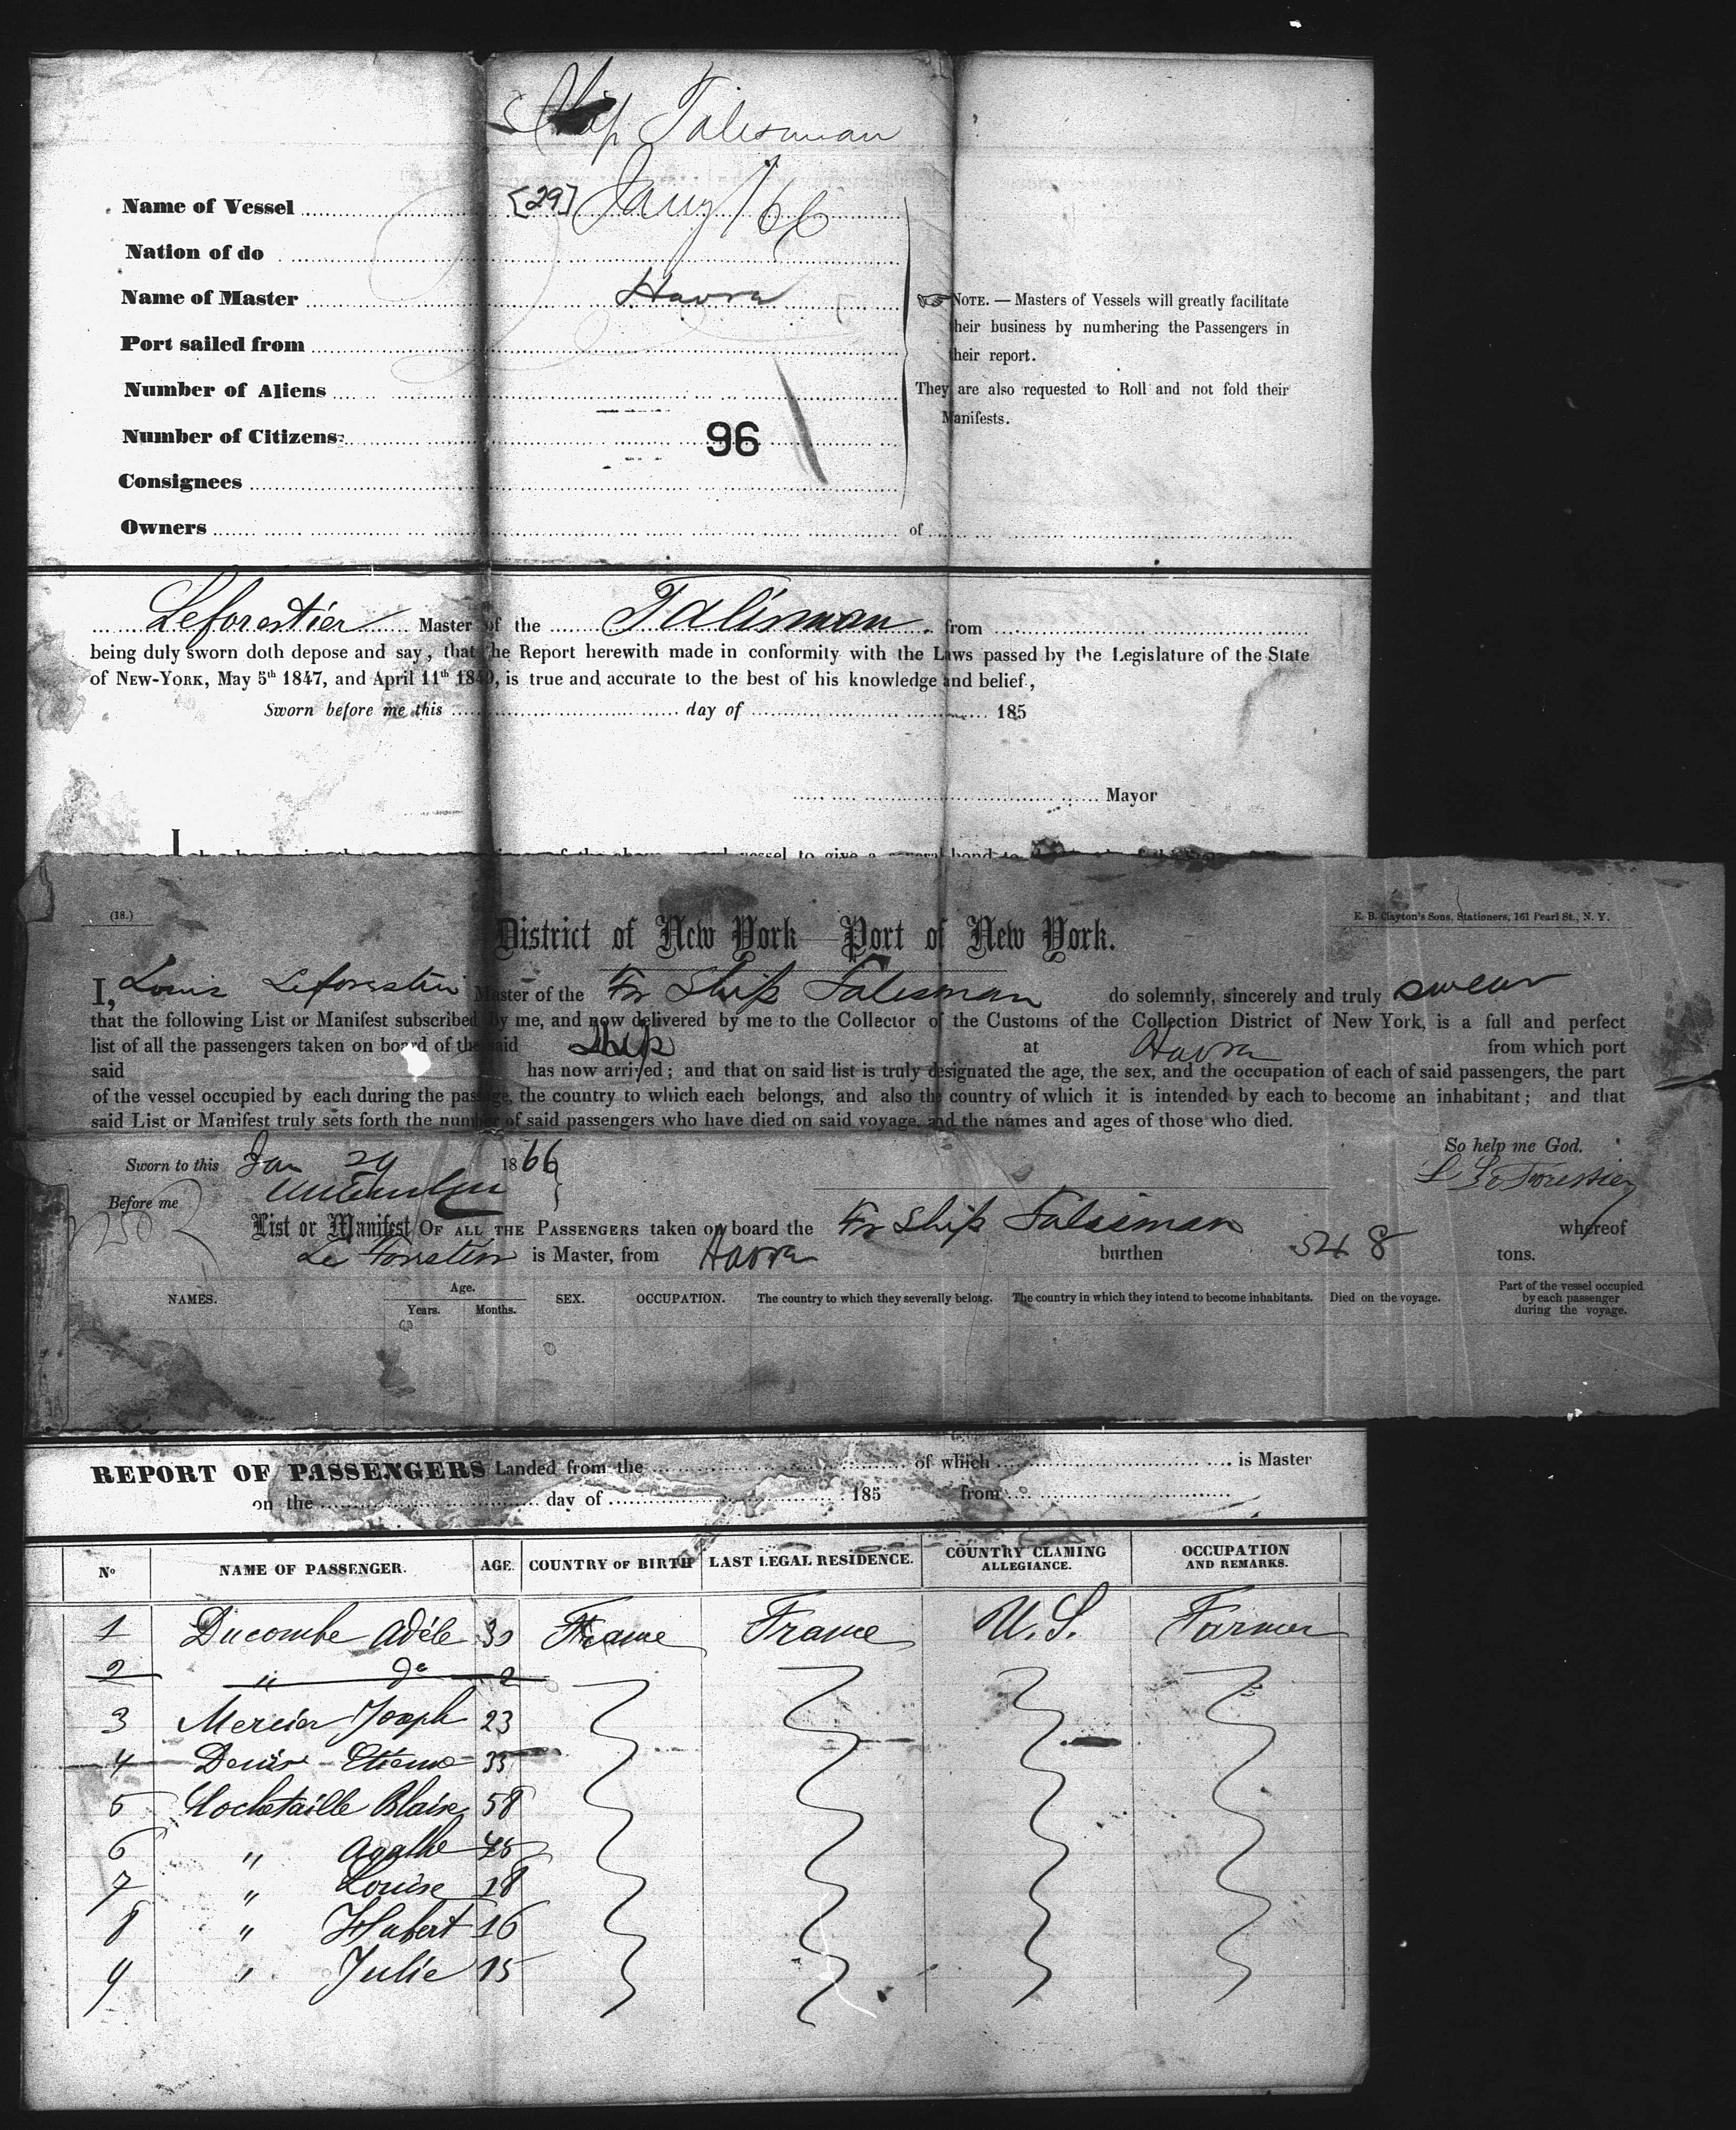 Ship Talisman
Name of Vessel [29] Jany /66
Nation of do
Name of Master Havra
Port sailed from
Number of Aliens
Number of Citizens
96
Consignees
Owners of
NOTE. — Masters of Vessels will greatly facilitate
their business by numbering the Passengers in
their report.
They are also requested to Roll and not fold their
Manifests.
Leforestier Master of the Talisman. from
being duly sworn doth depose and say, that the Report herewith made in conformity with the Laws passed by the Legislature of the State
of NEW-YORK, May 5th 1847, and April 11th 1849, is true and accurate to the best of his knowledge and belief,
Sworn before me this day of 185
Mayor
I
vessel to give a general bond to
(18.)
E. B. Clayton's Sons, Stationers, 161 Pearl St., N. Y.
District of New York Port of New York.
I, Louis Leforestier Master of the Fr Ship Talisman do solemnly, sincerely and truly swear
that the following List or Manifest subscribed by me, and now delivered by me to the Collector of the Customs of the Collection District of New York, is a full and perfect
list of all the passengers taken on board of the said Ship at Havra from which port
said has now arrived; and that on said list is truly designated the age, the sex, and the occupation of each of said passengers, the part
of the vessel occupied by each during the passage, the country to which each belongs, and also the country of which it is intended by each to become an inhabitant; and that
said List or Manifest truly sets forth the number of said passengers who have died on said voyage, and the names and ages of those who died.
So help me God.
Sworn to this Jan 29 1866
L Le Forestier
Before me
List or Manifest OF ALL THE PASSENGERS taken on board the Fr Ship Talisman whereof
Le Forestier is Master, from Havra burthen 548 tons.
NAMES. Age. Years. Months. SEX. OCCUPATION. The country to which they severally belong. The country in which they intend to become inhabitants. Died on the voyage. Part of the vessel occupied by each passenger during the voyage.
REPORT OF PASSENGERS Landed from the of which is Master
on the day of 185 from
No NAME OF PASSENGER. AGE. COUNTRY OF BIRTH LAST LEGAL RESIDENCE. COUNTRY CLAMING ALLEGIANCE. OCCUPATION AND REMARKS.
1 Ducombe Adèle 30 France France U.S. Farmer
2 " do 2
3 Mercier Joseph 23
4 Denis Etienne 35
5 Hochetaille Blaise 58
6 " Agathe 45
7 " Louise 18
8 " Hubert 16
9 " Julie 15